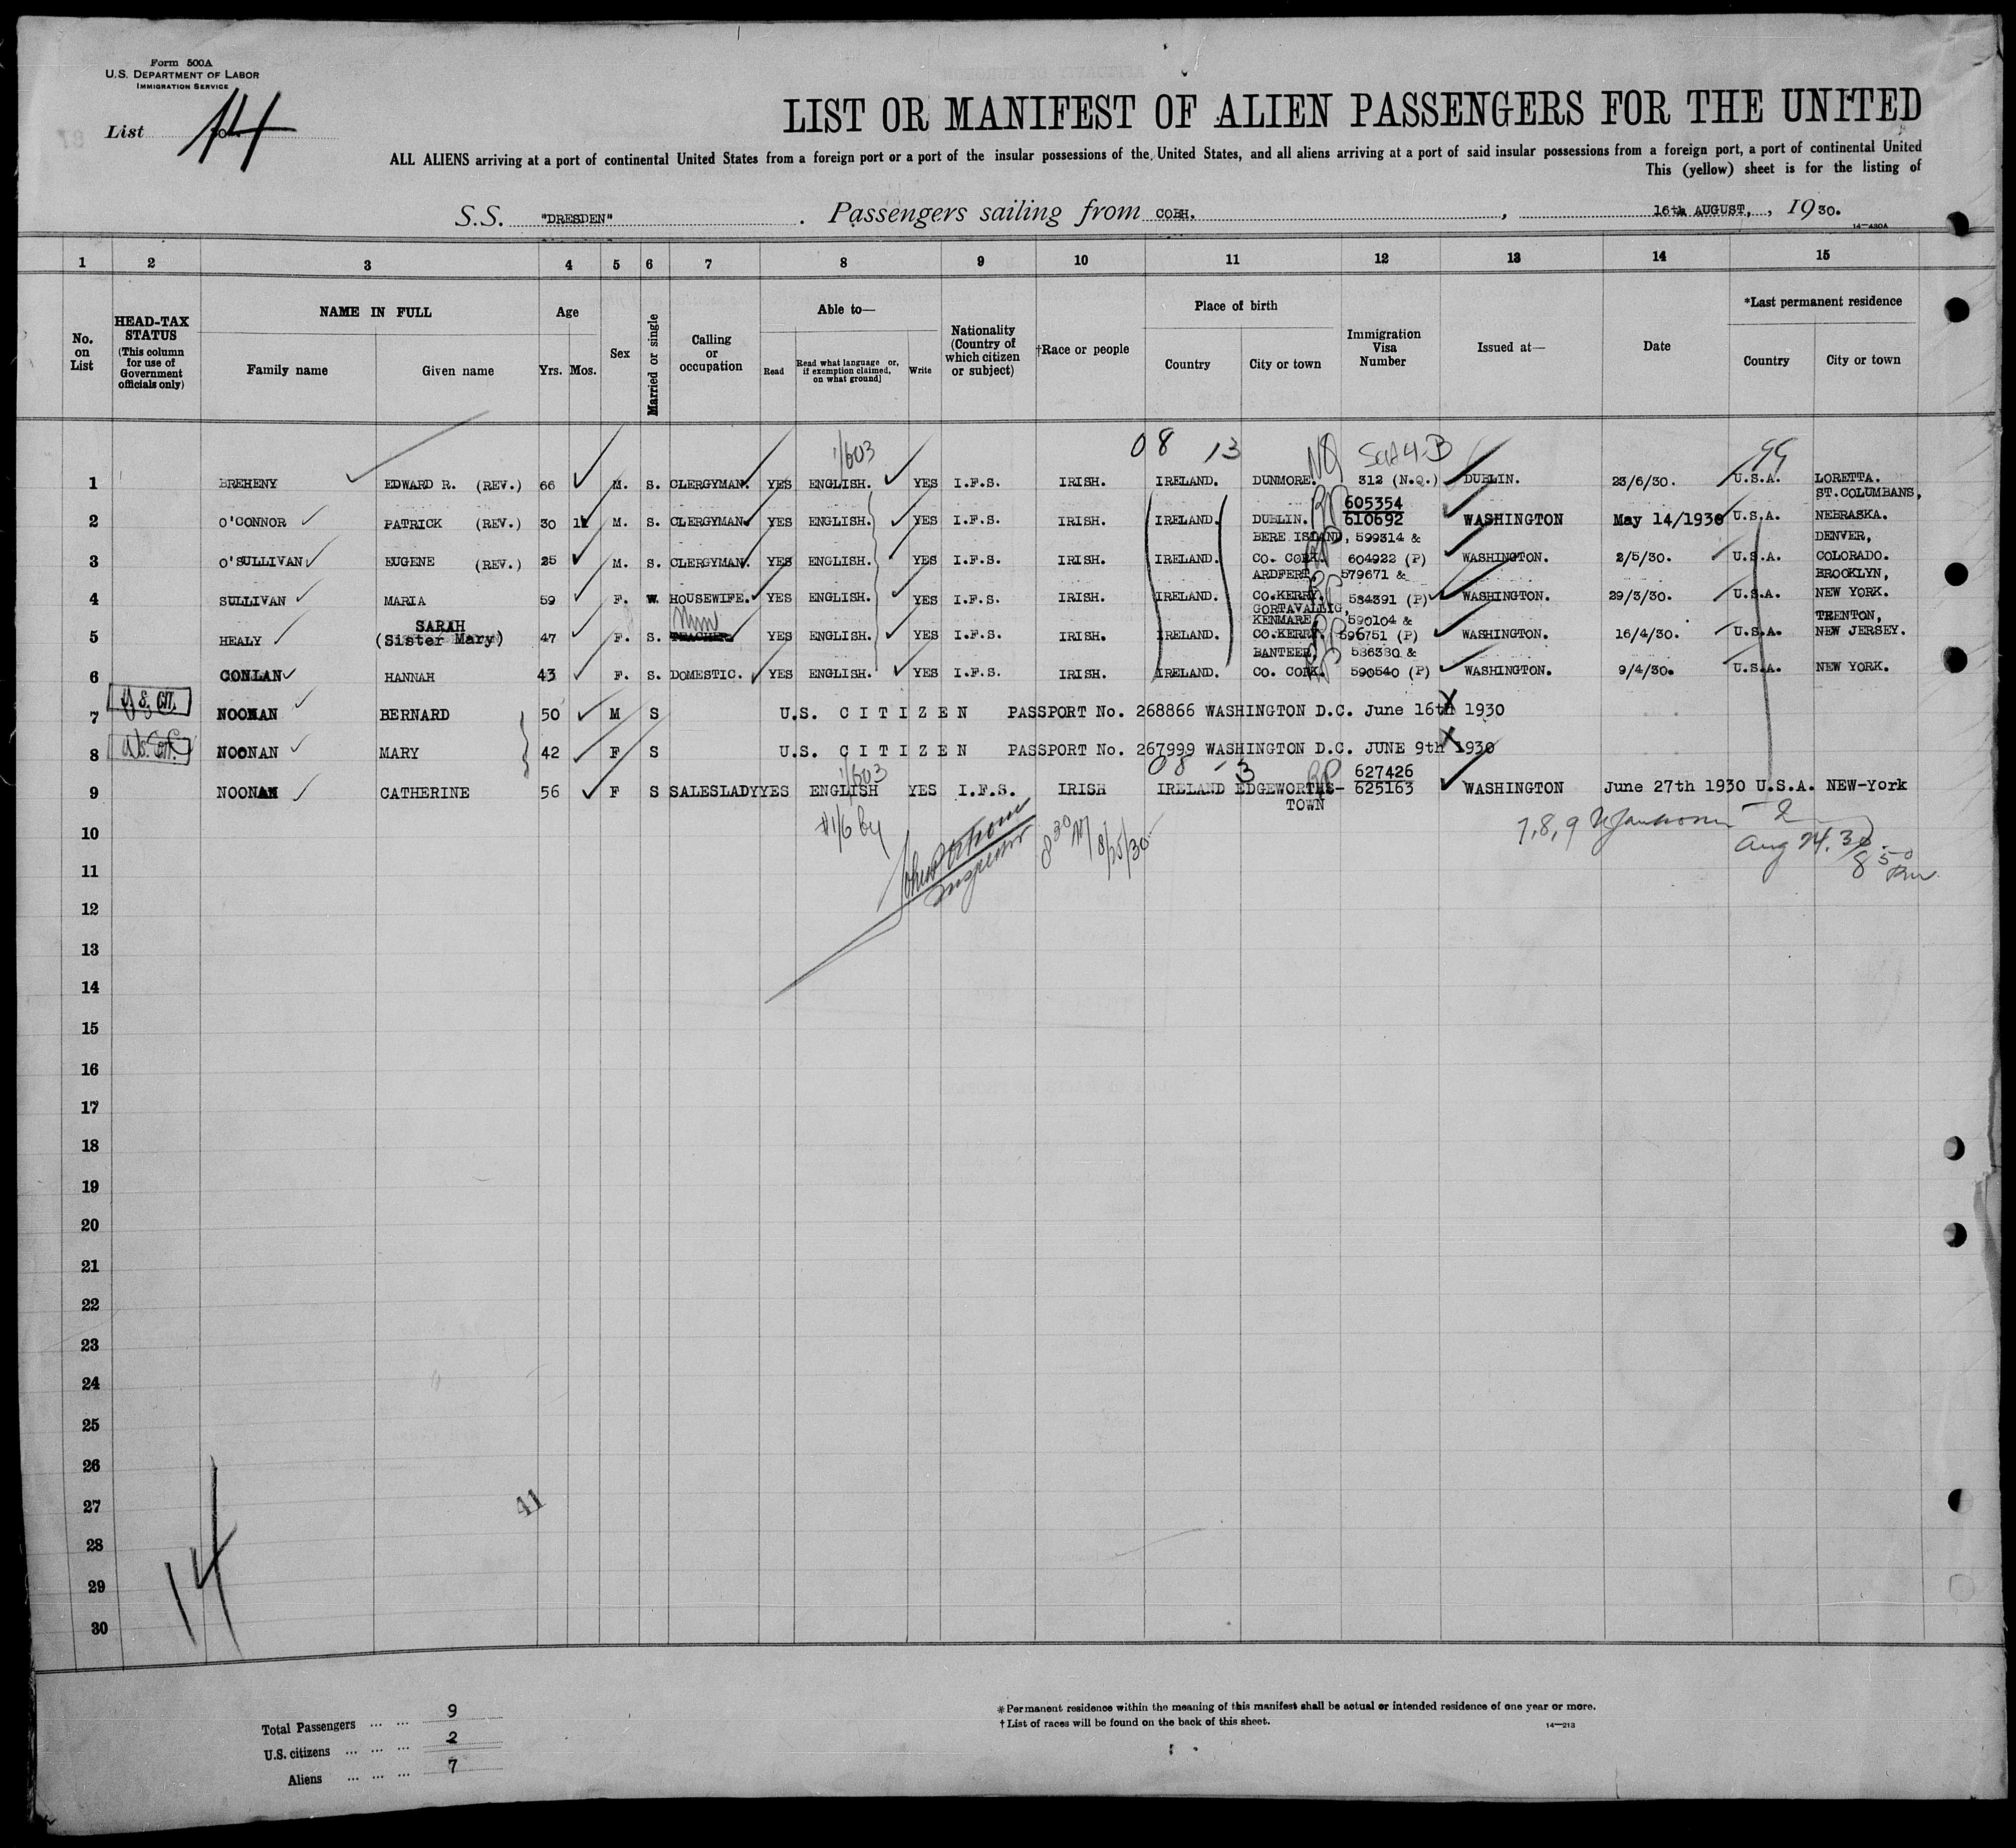 Form 500A
U.S. DEPARTMENT OF LABOR
IMMIGRATION SERVICE
List 14
LIST OR MANIFEST OF ALIEN PASSENGERS FOR THE UNITED
ALL ALIENS arriving at a port of continental United States from a foreign port or a port of the insular possessions of the United States, and all aliens arriving at a port of said insular possessions from a foreign port, a port of continental United
This (yellow) sheet is for the listing of
S.S. "DRESDEN" . Passengers sailing from COBH. , 16th AUGUST, , 1930.
14—430A
1 2 3 4 5 6 7 8 9 10 11 12 13 14 15
No. on List
HEAD-TAX STATUS (This column for use of Government officials only)
NAME IN FULL
Family name Given name
Age
Yrs. Mos.
Sex
Married or single
Calling or occupation
Able to—
Read
Read what language or, if exemption claimed, on what ground]
Write
Nationality (Country of which citizen or subject)
†Race or people
Place of birth
Country City or town
Immigration Visa Number
Issued at—
Date
*Last permanent residence
Country City or town
1/603 08 13 NQ Sec 4-B 99
1 BREHENY EDWARD R. (REV.) 66 M. S. CLERGYMAN. YES ENGLISH. YES I.F.S. IRISH. IRELAND. DUNMORE. 312 (N.Q.) DUBLIN. 23/6/30. U.S.A. LORETTA.
605354 ST.COLUMBANS,
2 O'CONNOR PATRICK (REV.) 30 11 M. S. CLERGYMAN. YES ENGLISH. YES I.F.S. IRISH. IRELAND. DUBLIN. 610692 WASHINGTON May 14/1930 U.S.A. NEBRASKA.
BERE ISLAND, 599314 & DENVER,
3 O'SULLIVAN EUGENE (REV.) 25 M. S. CLERGYMAN. YES ENGLISH. YES I.F.S. IRISH. IRELAND. CO. CORK. 604922 (P) WASHINGTON. 2/5/30. U.S.A. COLORADO.
ARDFERT, 579671 & BROOKLYN,
4 SULLIVAN MARIA 59 F. W. HOUSEWIFE. YES ENGLISH. YES I.F.S. IRISH. IRELAND. CO.KERRY. 584391 (P) WASHINGTON. 29/3/30. U.S.A. NEW YORK.
GORTAVALLIG,
SARAH Nun KENMARE, 590104 & TRENTON,
5 HEALY (Sister Mary) 47 F. S. TEACHER. YES ENGLISH. YES I.F.S. IRISH. IRELAND. CO.KERRY. 596751 (P) WASHINGTON. 16/4/30. U.S.A. NEW JERSEY.
BANTEER, 586380 &
6 CONLAN HANNAH 43 F. S. DOMESTIC. YES ENGLISH. YES I.F.S. IRISH. IRELAND. CO. CORK. 590540 (P) WASHINGTON. 9/4/30. U.S.A. NEW YORK.
U.S. CIT.
7 NOONAN BERNARD 50 M S U.S. CITIZEN PASSPORT No. 268866 WASHINGTON D.C. June 16th 1930
8 NOONAN MARY 42 F S U.S. CITIZEN PASSPORT No. 267999 WASHINGTON D.C. JUNE 9th 1930
1/603 08 13 RP 627426
9 NOONAN CATHERINE 56 F S SALESLADY YES ENGLISH YES I.F.S. IRISH IRELAND EDGEWORTHS- 625163 WASHINGTON June 27th 1930 U.S.A. NEW-York
TOWN
10
#1/6 by
Inspector
8 30 8/25/30
7,8,9
Aug 24. 30.
8 50 Pm
11
12
13
14
15
16
17
18
19
20
21
22
23
24
25
26
27
28
29
30
41
14
Total Passengers ... ... 9
U.S. citizens ... ... ... 2
Aliens ... ... ... 7
*Permanent residence within the meaning of this manifest shall be actual or intended residence of one year or more.
†List of races will be found on the back of this sheet.
14—213